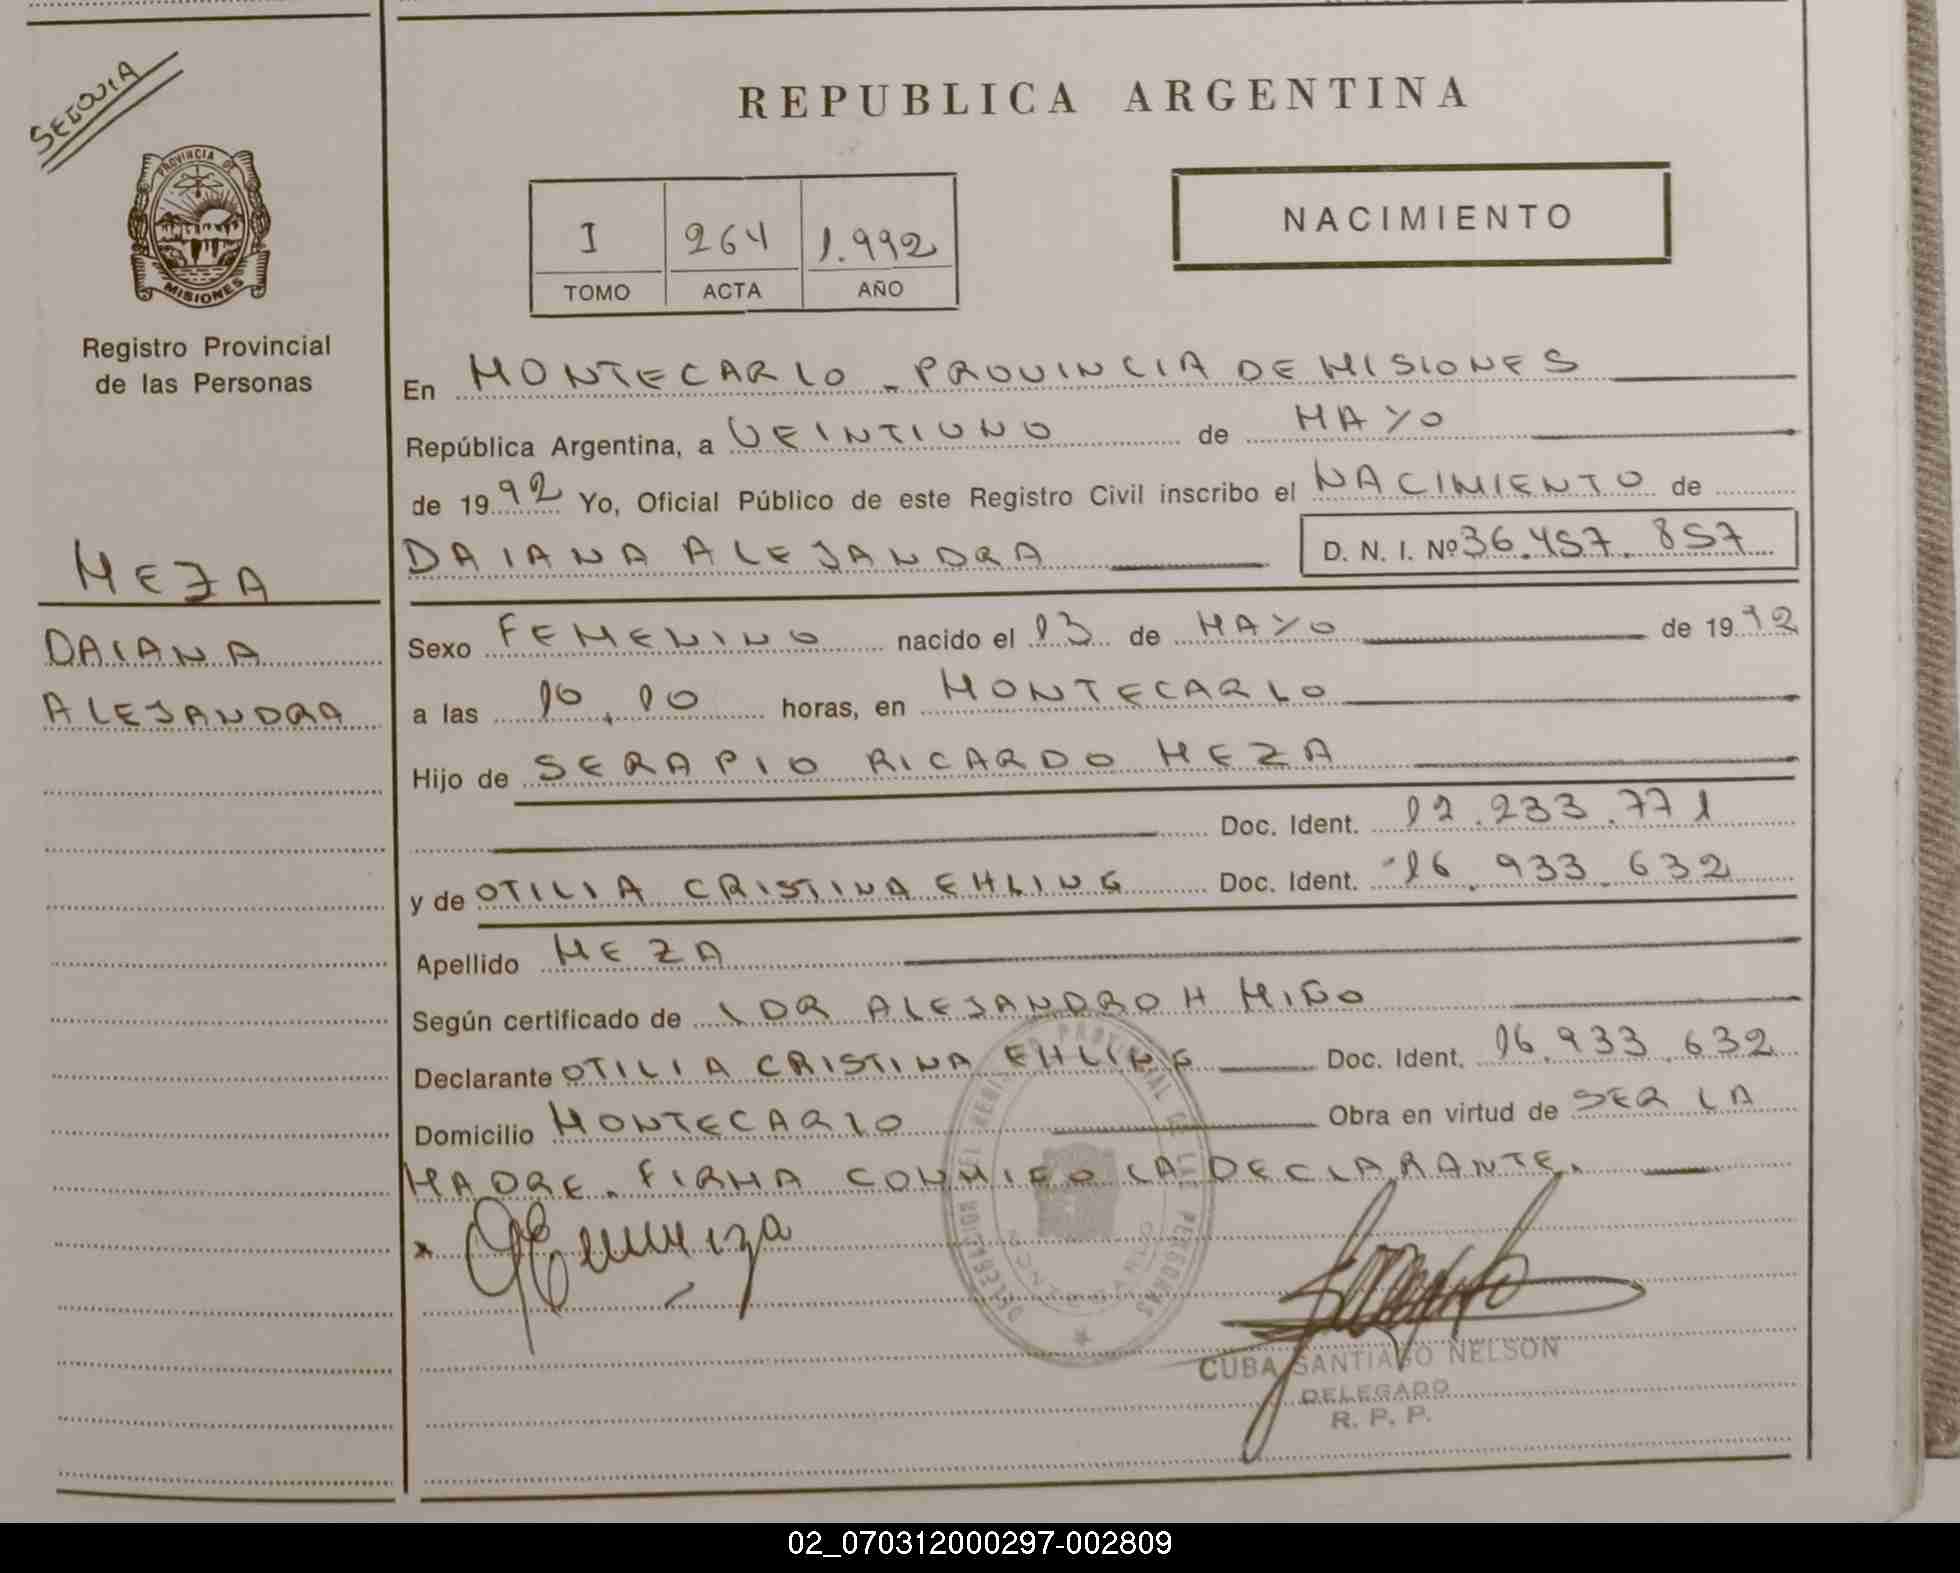 SEGOVIA
PROVINCIA DE
MISIONES
Registro Provincial
de las Personas
MEZA
DAIANA
ALEJANDRA
REPUBLICA ARGENTINA
I 264 1.992
TOMO ACTA AÑO
NACIMIENTO
En MONTECARLO - PROVINCIA DE MISIONES
República Argentina, a VEINTIUNO de MAYO
de 1992 Yo, Oficial Público de este Registro Civil inscribo el NACIMIENTO de
DAIANA ALEJANDRA D. N. I. Nº 36.457.857
Sexo FEMENINO nacido el 13 de MAYO de 1992
a las 10.10 horas, en MONTECARLO
Hijo de SERAPIO RICARDO MEZA
Doc. Ident. 12.233.771
y de OTILIA CRISTINA EHLING Doc. Ident. 16.933.632
Apellido MEZA
Según certificado de DR ALEJANDRO H MIÑO
Declarante OTILIA CRISTINA EHLING Doc. Ident. 16.933.632
Domicilio MONTECARLO Obra en virtud de SER LA
MADRE. FIRMA CONMIGO LA DECLARANTE.
DELEGACION DEL REGISTRO PROVINCIAL DE LAS PERSONAS
MONTECARLO
CUBA SANTIAGO NELSON
DELEGADO
R. P. P.
02_070312000297-002809